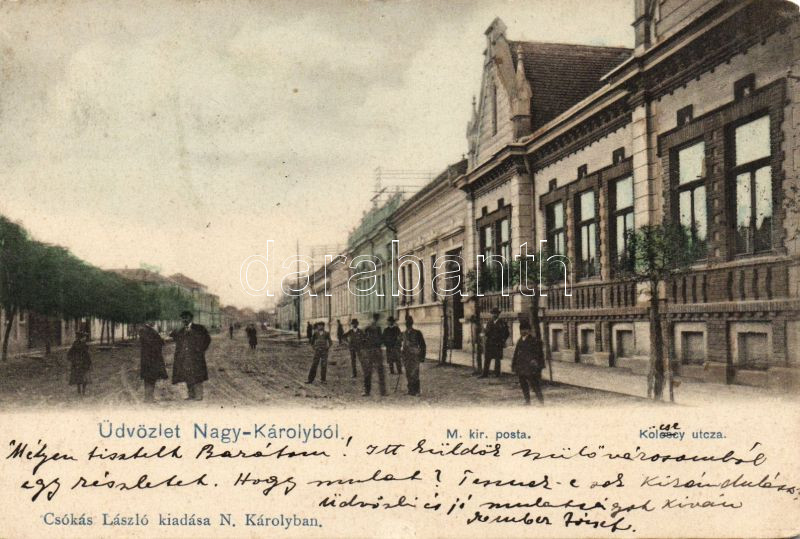 darabanth
Üdvözlet Nagy-Károlyból.
M. kir. posta.
Kölcsey utcza.
Mélyen tisztelt Barátom! Itt küldök szülővárosomból
egy részletet. Hogy mulat? Tesznek-e sok kirándulást?
üdvözli és jó mulatságot kíván
József.
Csókás László kiadása N. Károlyban.